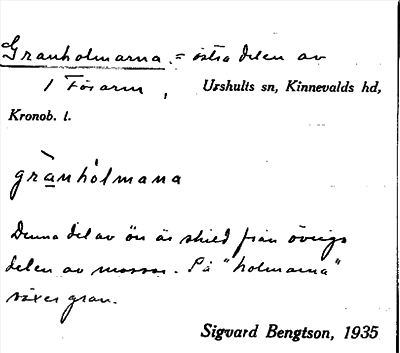 Granholmarna. = östra delen av
1 Försarm, Urshults sn, Kinnevalds hd,
Kronob. l.
grànhólmana
Denna del av ön är skild från övriga
delen av mossar. På "holmarna"
växer gran.
Sigvard Bengtson, 1935